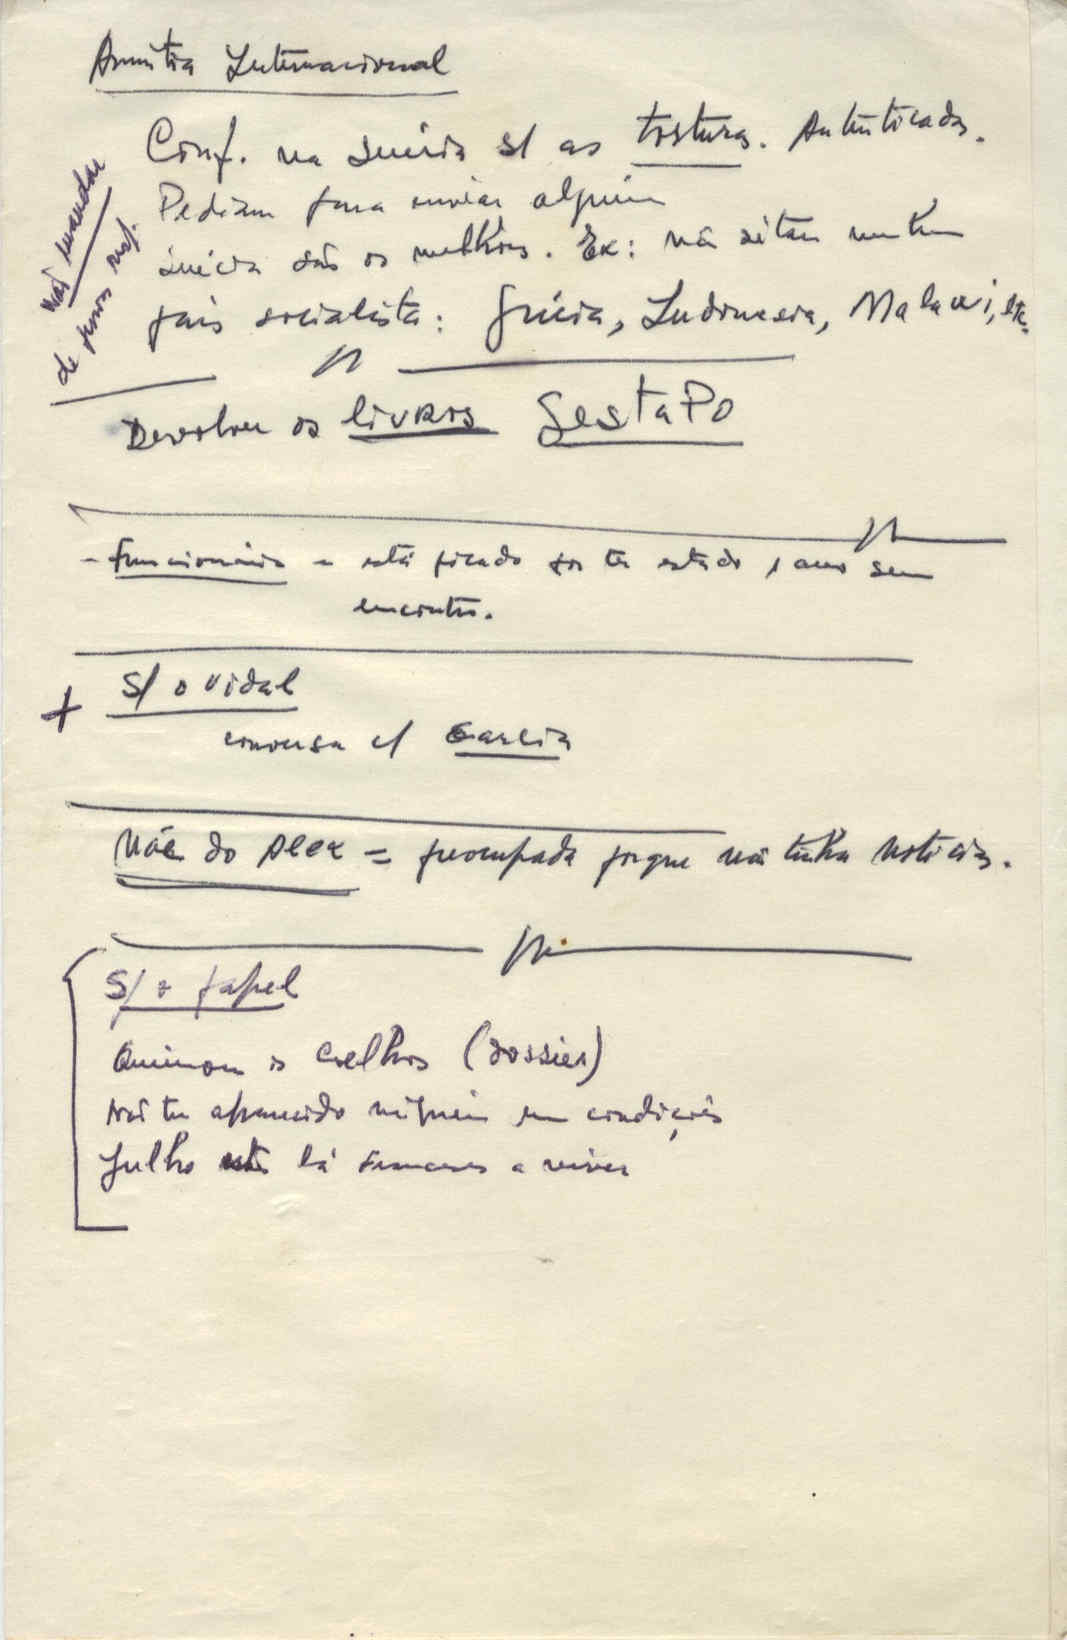 Amnistia Internacional
Conf. na Suécia s/ as torturas. Autenticadas.
Pediam para enviar alguém
Suécia são os melhores. Ex: não citam nenhum
país socialista: Grécia, Indonésia, Malawi, etc.
não mandar
de novos
Devolver os livros Gestapo
- Funcionário - está picado por ter estado 1 ano sem
encontro.
+ S/ o Vidal
conversa c/ Garcia
Mãe do Alex = preocupada porque não tinha notícias.
S/ o papel
Queimou os Coelhos (dossier)
Não tem aparecido ninguém em condições
Julho lá semanas a viver